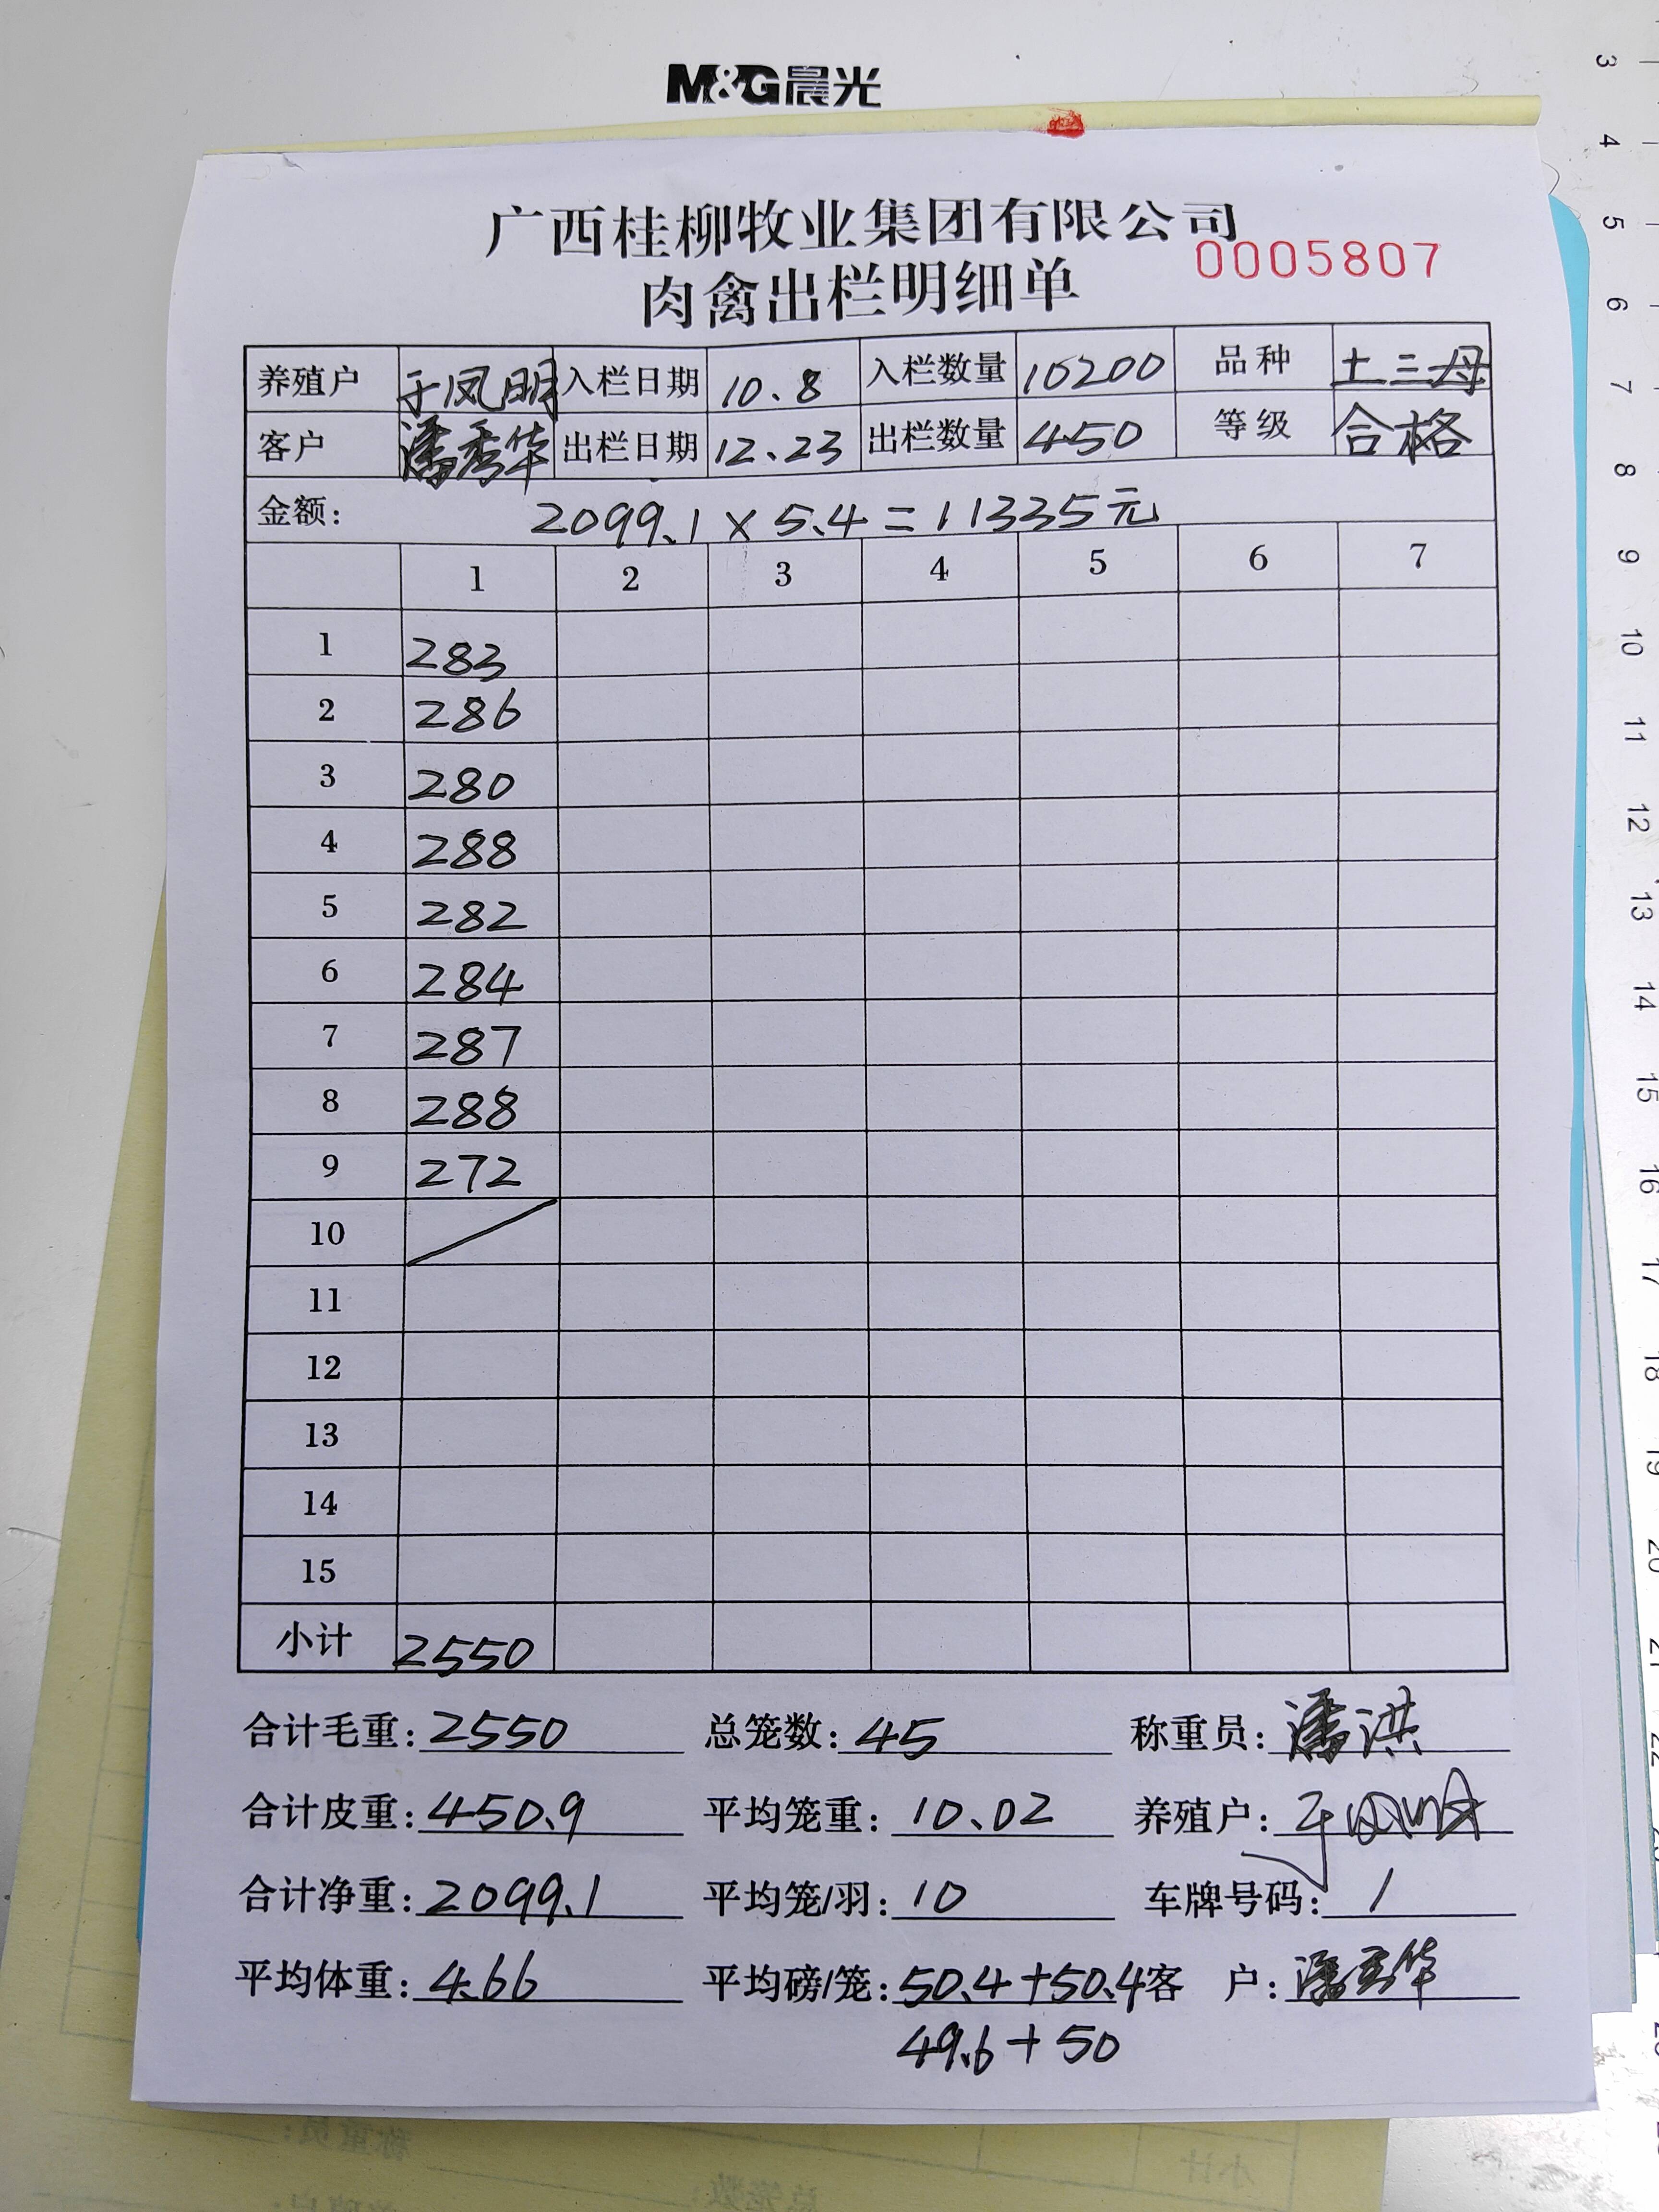 M&G晨光
广西桂柳牧业集团有限公司
0005807
肉禽出栏明细单
养殖户 于凤明 入栏日期 10.8 入栏数量 10200 品种 土三母
客户 潘秀华 出栏日期 12.23 出栏数量 450 等级 合格
金额: 2099.1 × 5.4 = 11335元
1 2 3 4 5 6 7
1 283
2 286
3 280
4 288
5 282
6 284
7 287
8 288
9 272
10 /
11
12
13
14
15
小计 2550
合计毛重: 2550 总笼数: 45 称重员: 潘洪
合计皮重: 450.9 平均笼重: 10.02 养殖户: 于凤明
合计净重: 2099.1 平均笼/羽: 10 车牌号码: /
平均体重: 4.66 平均磅/笼: 50.4+50.4 客 户: 潘秀华
49.6+50
称重员:
小计
总笼数:
3
4
5
6
7
8
9
10
11
12
13
14
15
16
17
18
19
20
21
22